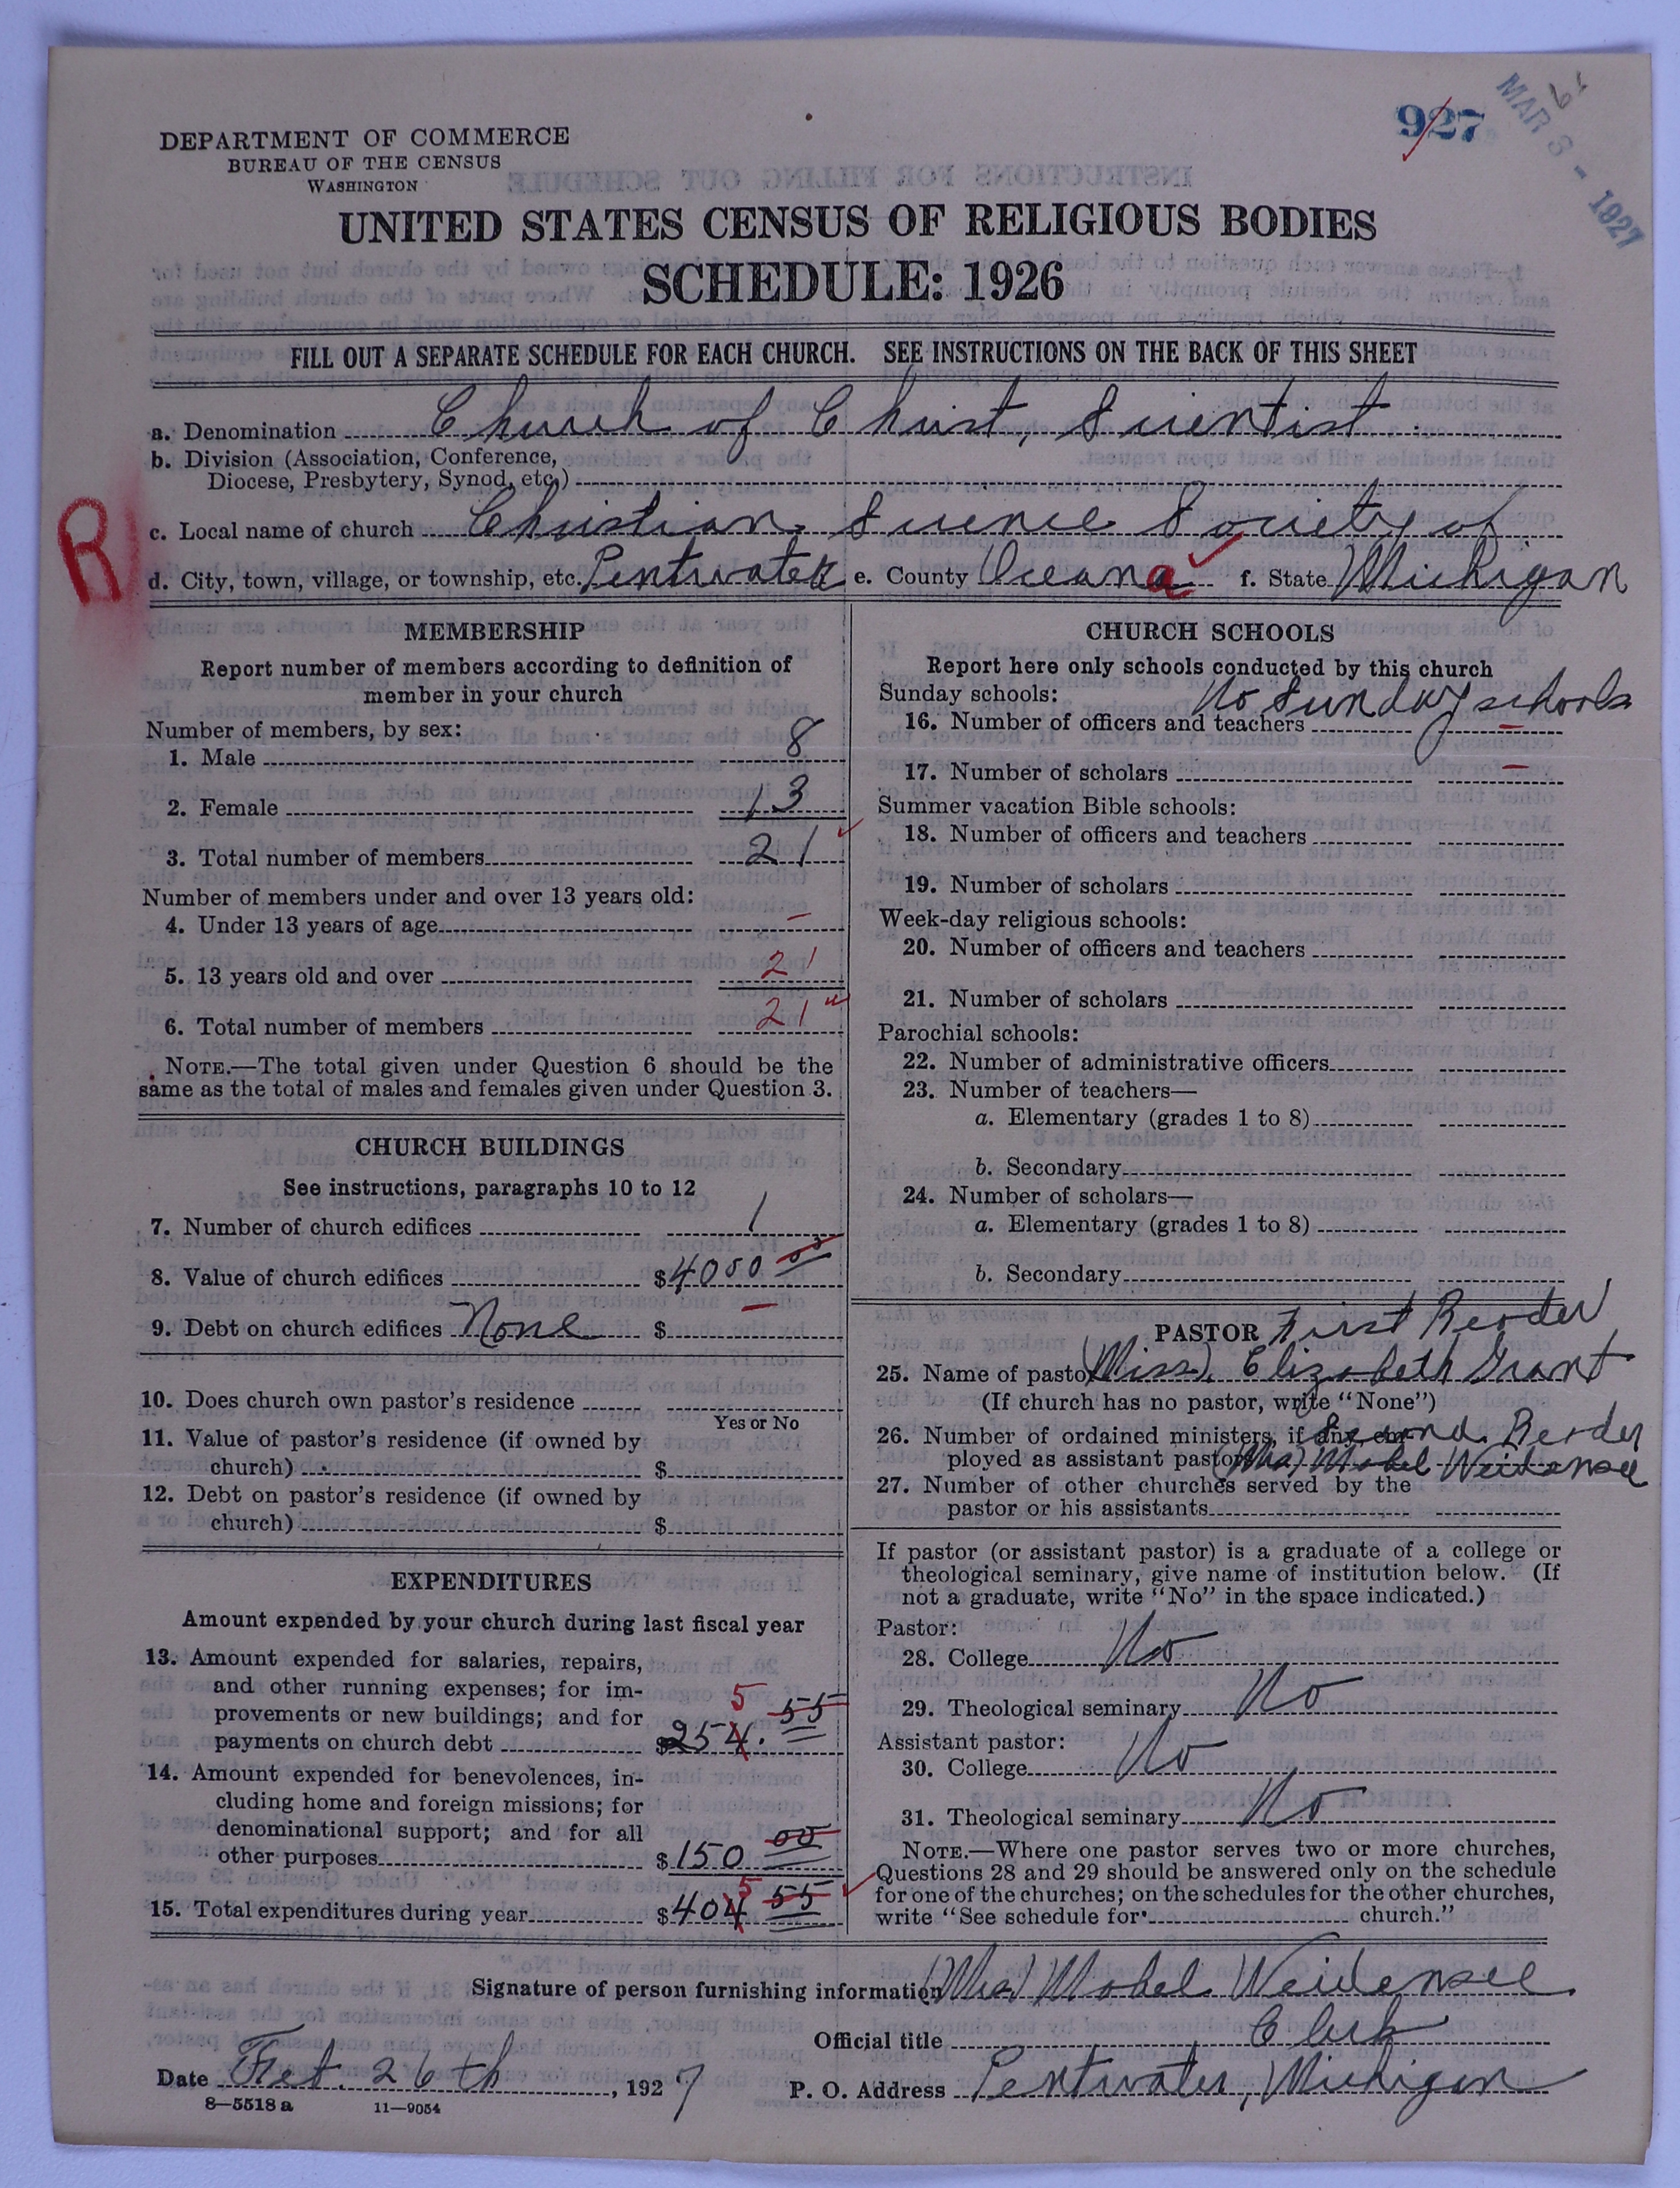 927
61
MAR 3 - 1927
DEPARTMENT OF COMMERCE
BUREAU OF THE CENSUS
WASHINGTON
UNITED STATES CENSUS OF RELIGIOUS BODIES
SCHEDULE: 1926
FILL OUT A SEPARATE SCHEDULE FOR EACH CHURCH. SEE INSTRUCTIONS ON THE BACK OF THIS SHEET
a. Denomination Church of Christ, Scientist.
b. Division (Association, Conference,
Diocese, Presbytery, Synod, etc.)
R
c. Local name of church Christian Science Society of
d. City, town, village, or township, etc. Pentwater e. County Oceana f. State Michigan
MEMBERSHIP
Report number of members according to definition of
member in your church
Number of members, by sex:
1. Male 8
2. Female 13
3. Total number of members 21
Number of members under and over 13 years old:
4. Under 13 years of age –
5. 13 years old and over 21
6. Total number of members 21
NOTE.—The total given under Question 6 should be the
same as the total of males and females given under Question 3.
CHURCH BUILDINGS
See instructions, paragraphs 10 to 12
7. Number of church edifices 1
8. Value of church edifices $4000 00
9. Debt on church edifices None $ –
10. Does church own pastor's residence
Yes or No
11. Value of pastor's residence (if owned by
church) $
12. Debt on pastor's residence (if owned by
church) $
EXPENDITURES
Amount expended by your church during last fiscal year
13. Amount expended for salaries, repairs,
and other running expenses; for im-
provements or new buildings; and for 5
payments on church debt $254. 55
14. Amount expended for benevolences, in-
cluding home and foreign missions; for
denominational support; and for all
other purposes $150 00
5
15. Total expenditures during year $404 55
CHURCH SCHOOLS
Report here only schools conducted by this church
Sunday schools: No Sunday schools
16. Number of officers and teachers –
17. Number of scholars –
Summer vacation Bible schools:
18. Number of officers and teachers
19. Number of scholars
Week-day religious schools:
20. Number of officers and teachers
21. Number of scholars
Parochial schools:
22. Number of administrative officers
23. Number of teachers—
a. Elementary (grades 1 to 8)
b. Secondary
24. Number of scholars—
a. Elementary (grades 1 to 8)
b. Secondary
PASTOR First Reader
25. Name of pastor (Miss) Elizabeth Grant
(If church has no pastor, write "None")
26. Number of ordained ministers, if any, em- Second Reader
ployed as assistant pastors (Mrs) Mabel Weidensee
27. Number of other churches served by the
pastor or his assistants
If pastor (or assistant pastor) is a graduate of a college or
theological seminary, give name of institution below. (If
not a graduate, write "No" in the space indicated.)
Pastor:
28. College No
29. Theological seminary No
Assistant pastor:
30. College No
31. Theological seminary No
NOTE.—Where one pastor serves two or more churches,
Questions 28 and 29 should be answered only on the schedule
for one of the churches; on the schedules for the other churches,
write "See schedule for church."
Signature of person furnishing information (Mrs) Mabel Weidensee
Official title Clerk
Date Feb. 26th, 1927 P. O. Address Pentwater, Michigan
8—5518 a 11—9054